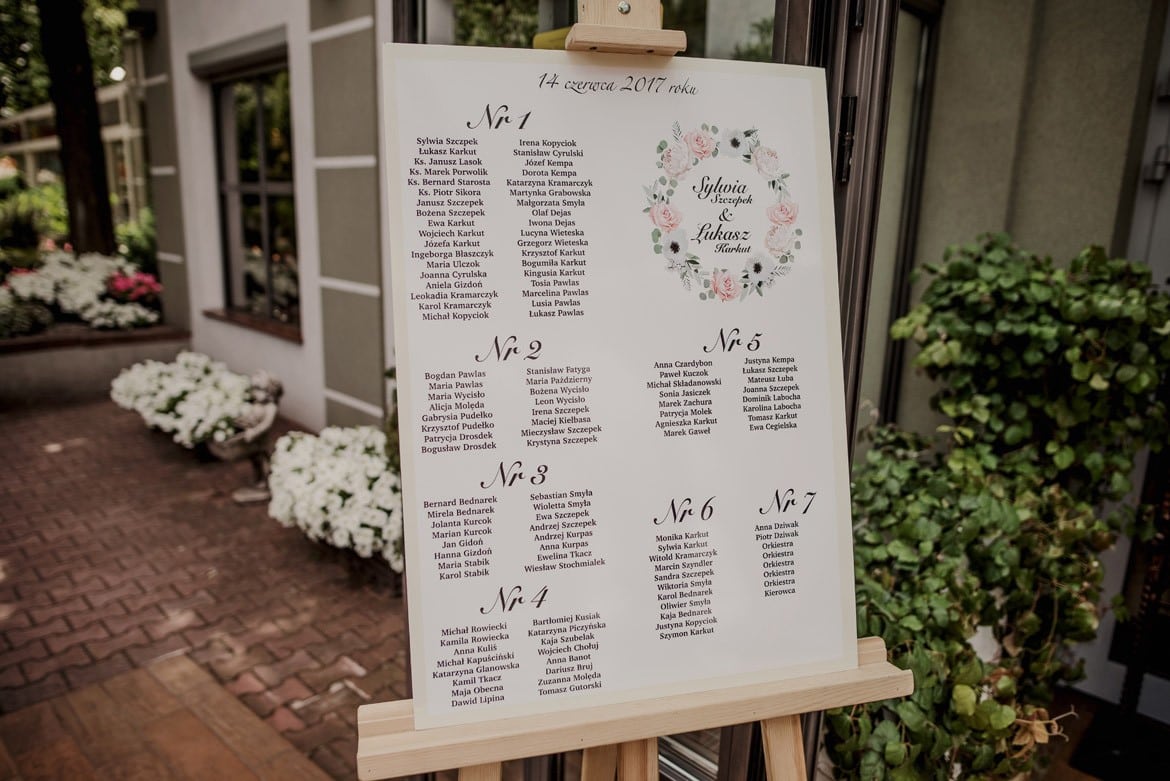 14 czerwca 2017 roku
Nr 1
Sylwia Szczpek
Łukasz Karkut
Ks. Janusz Lasok
Ks. Marek Porwolik
Ks. Bernard Starosta
Ks. Piotr Sikora
Janusz Szczepek
Bożena Szczepek
Ewa Karkut
Wojciech Karkut
Józefa Karkut
Ingeborga Błaszczyk
Maria Ulczok
Joanna Cyrulska
Aniela Gizdoń
Leokadia Kramarczyk
Karol Kramarczyk
Michał Kopyciok
Irena Kopyciok
Stanisław Cyrulski
Józef Kempa
Dorota Kempa
Katarzyna Kramarczyk
Martynka Grabowska
Małgorzata Smyła
Olaf Dejas
Iwona Dejas
Lucyna Wieteska
Grzegorz Wieteska
Krzysztof Karkut
Bogumiła Karkut
Kingusia Karkut
Tosia Pawlas
Marcelina Pawlas
Lusia Pawlas
Łukasz Pawlas
Sylwia
Szczepek
&
Łukasz
Karkut
Nr 2
Bogdan Pawlas
Maria Pawlas
Maria Wycisło
Alicja Molęda
Gabrysia Pudełko
Krzysztof Pudełko
Patrycja Drosdek
Bogusław Drosdek
Stanisław Fatyga
Maria Październy
Bożena Wycisło
Leon Wycisło
Irena Szczepek
Maciej Kiełbasa
Mieczysław Szczepek
Krystyna Szczepek
Nr 3
Bernard Bednarek
Mirela Bednarek
Jolanta Kurcok
Marian Kurcok
Jan Gidoń
Hanna Gizdoń
Maria Stabik
Karol Stabik
Sebastian Smyła
Wioletta Smyła
Ewa Szczepek
Andrzej Szczepek
Andrzej Kurpas
Anna Kurpas
Ewelina Tkacz
Wiesław Stochmialek
Nr 4
Michał Rowiecki
Kamila Rowiecka
Anna Kuliś
Michał Kapuściński
Katarzyna Glanowska
Kamil Tkacz
Maja Obecna
Dawid Lipina
Bartłomiej Kusiak
Katarzyna Piczyńska
Kaja Szubelak
Wojciech Chołuj
Anna Banot
Dariusz Bruj
Zuzanna Molęda
Tomasz Gutorski
Nr 5
Anna Czardybon
Paweł Kuczok
Michał Składanowski
Sonia Jasiczek
Marek Zachura
Patrycja Molek
Agnieszka Karkut
Marek Gaweł
Justyna Kempa
Łukasz Szczepek
Mateusz Łuba
Joanna Szczepek
Dominik Labocha
Karolina Labocha
Tomasz Karkut
Ewa Cegielska
Nr 6
Monika Karkut
Sylwia Karkut
Witold Kramarczyk
Marcin Szyndler
Sandra Szczepek
Wiktoria Smyła
Karol Bednarek
Oliwier Smyła
Kaja Bednarek
Justyna Kopyciok
Szymon Karkut
Nr 7
Anna Dziwak
Piotr Dziwak
Orkiestra
Orkiestra
Orkiestra
Orkiestra
Orkiestra
Kierowca